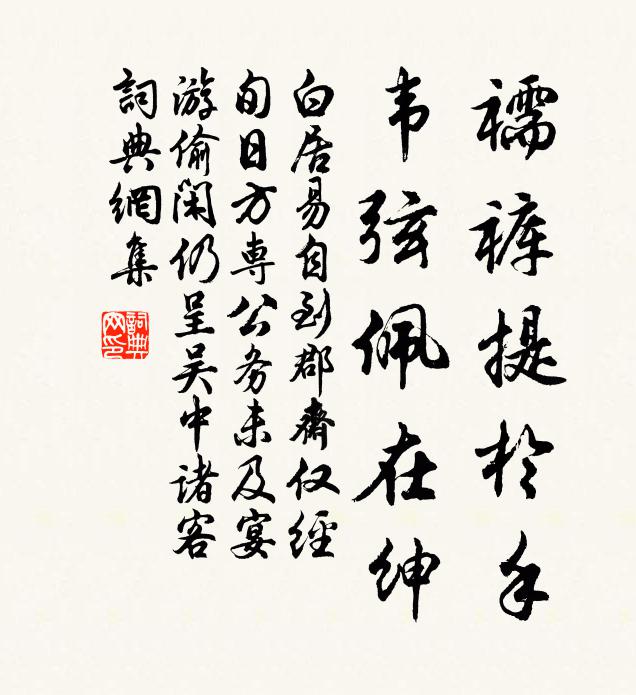 襦裤提於手
韦弦佩在绅
白居易自到郡齋仅經
旬日方専公务未及宴
游偷闲仍呈吴中诸客
詞典網集
詞典
网印